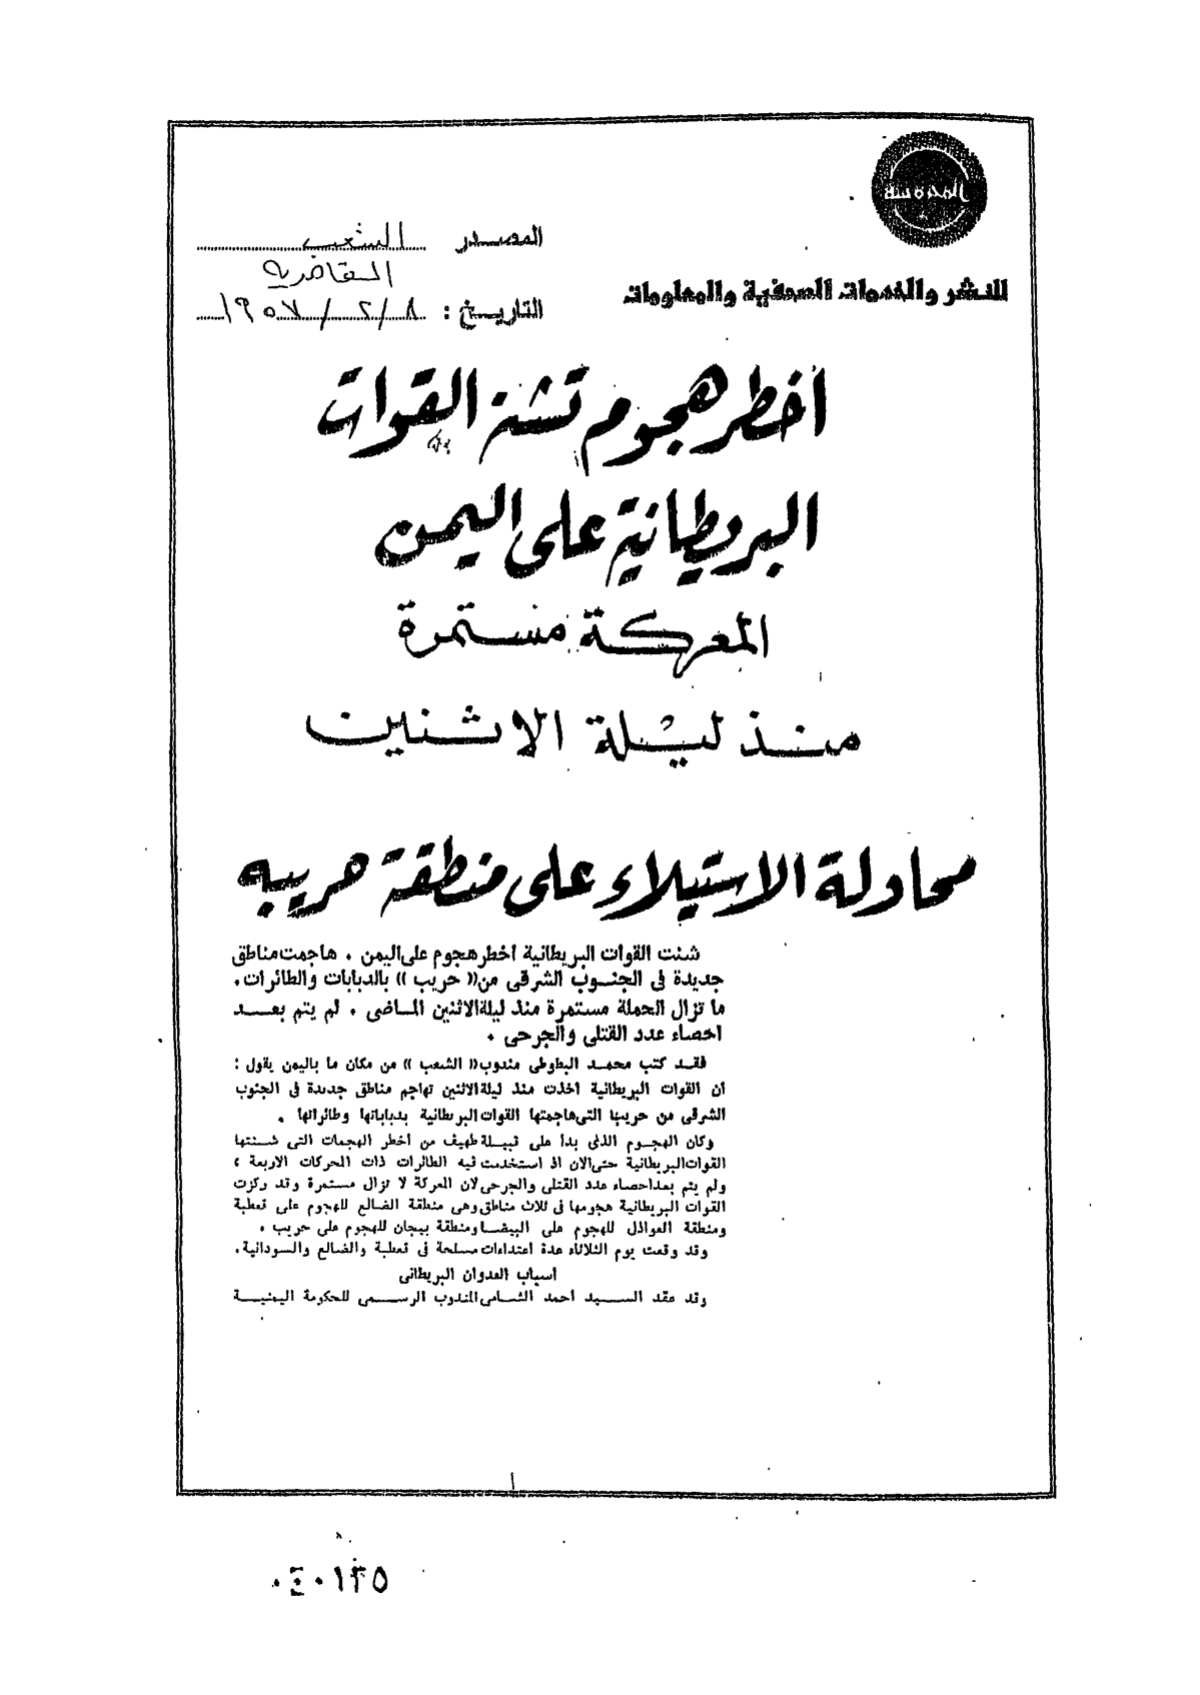 المحروسة
للنشر والخدمات الصحفية والمعلومات
المصدر الشعب
القاهرية
التاريخ : ٨/٢/١٩٥٧
أخطر هجوم تشنه القوات
البريطانية على اليمن
المعركة مستمرة
منذ ليلة الاثنين
محاولة الاستيلاء على منطقة حريب
شنت القوات البريطانية أخطر هجوم على اليمن . هاجمت مناطق
جديدة فى الجنوب الشرقى من (( حريب )) بالدبابات والطائرات .
ما تزال الحملة مستمرة منذ ليلة الاثنين الماضى . لم يتم بعد
احصاء عدد القتلى والجرحى .
فقد كتب محمد البطوطى مندوب (( الشعب )) من مكان ما باليمن يقول :
ان القوات البريطانية اخذت منذ ليلة الاثنين تهاجم مناطق جديدة فى الجنوب
الشرقى من حريب التى هاجمتها القوات البريطانية بدباباتها وطائراتها .
وكان الهجوم الذى بدأ على قبيلة طهيف من أخطر الهجمات التى شنتها
القوات البريطانية حتى الان اذ استخدمت فيه الطائرات ذات المحركات الاربعة ،
ولم يتم بعد احصاء عدد القتلى والجرحى لان المعركة لا تزال مستمرة وقد ركزت
القوات البريطانية هجومها فى ثلاث مناطق وهى منطقة الضالع للهجوم على قعطبة
ومنطقة العواذل للهجوم على البيضا ومنطقة بيحان للهجوم على حريب .
وقد وقعت يوم الثلاثاء عدة اعتداءات مسلحة فى قعطبة والضالع والسودانية .
أسباب العدوان البريطانى
وقد عقد السيد احمد الشامى المندوب الرسمى للحكومة اليمنية
٠٤٠١٣٥